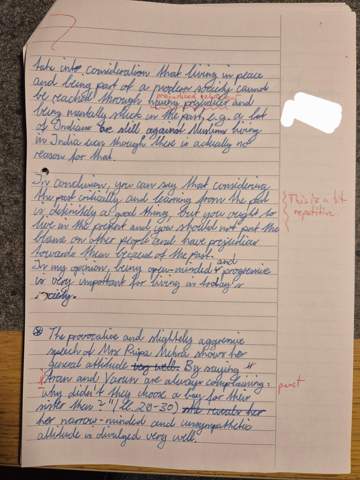 take into consideration that living in peace
and being part of a modern society cannot
be reached through having prejudices and
being mentally stuck in the past, e.g. a lot
of Indians be still against Muslims living
in India even though there is actually no
reason for that.
In conclusion, you can say that considering
the past critically and learning from the past
is definitely a good thing, but you ought to
live in the present and you should not put the
blame on other people and have prejudices
towards them because of the past.
In my opinion, being open-minded and progressive
is very important for living in today's
society.
This is a bit
repetitive
The provocative and slightely aggressive
speech of Mrs Rupa Mehra shows her
general attitude very well. By saying "
Arun and Varun are always complaining:
punct
why didn't they choose a boy for their
sister then?" (ll. 28-30) she reveals her
her narrow-minded and unsympathetic
attitude is divulged very well.